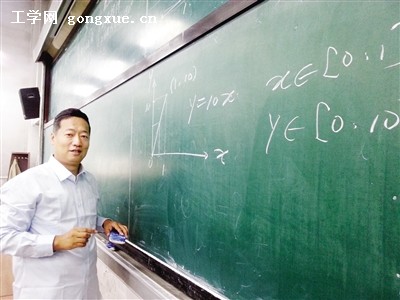 工学网 gongxue.cn
(1,10)
y=10x
x∈[0,1
y∈[0,10
x
1